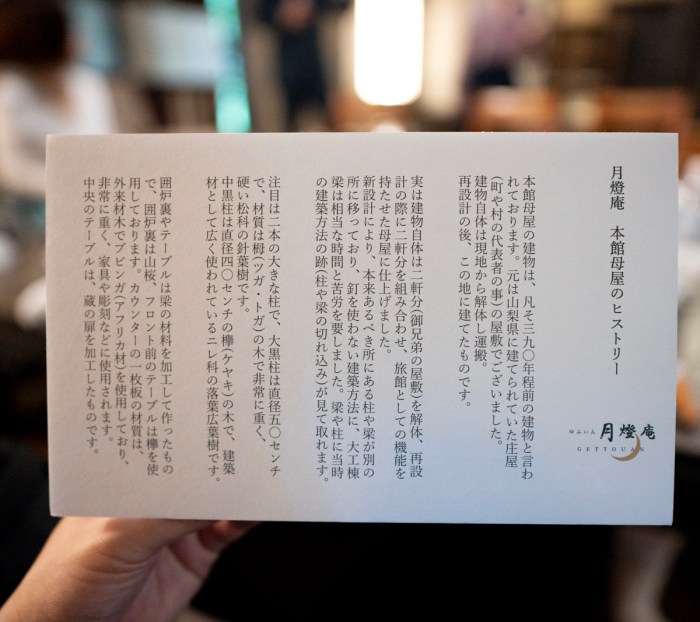 月燈庵　本館母屋のヒストリー
ゆふいん 月燈庵
GETTOUAN
本館母屋の建物は、凡そ三九〇年程前の建物と言わ
れております。元は山梨県に建てられていた庄屋
(町や村の代表者の事)の屋敷でございました。
建物自体は現地から解体し運搬。
再設計の後、この地に建てたものです。
実は建物自体は二軒分(御兄弟の屋敷)を解体、再設
計の際に二軒分を組み合わせ、旅館としての機能を
持たせた母屋に仕上げました。
新設計により、本来あるべき所にある柱や梁が別の
所に移っており、釘を使わない建築方法に、大工棟
梁は相当な時間と苦労を要しました。梁や柱に当時
の建築方法の跡(柱や梁の切れ込み)が見て取れます。
注目は二本の大きな柱で、大黒柱は直径五〇センチ
で、材質は栂(ツガ・トガ)の木で非常に重く、
硬い松科の針葉樹です。
中黒柱は直径四〇センチの欅(ケヤキ)の木で、建築
材として広く使われているニレ科の落葉広葉樹です。
囲炉裏やテーブルは梁の材料を加工して作ったもの
で、囲炉裏は山桜、フロント前のテーブルは欅を使
用しております。カウンターの一枚板の材質は、
外来材木でブビンガ(アフリカ材)を使用しており、
非常に重く、家具や彫刻などに使用されます。
中央のテーブルは、蔵の扉を加工したものです。